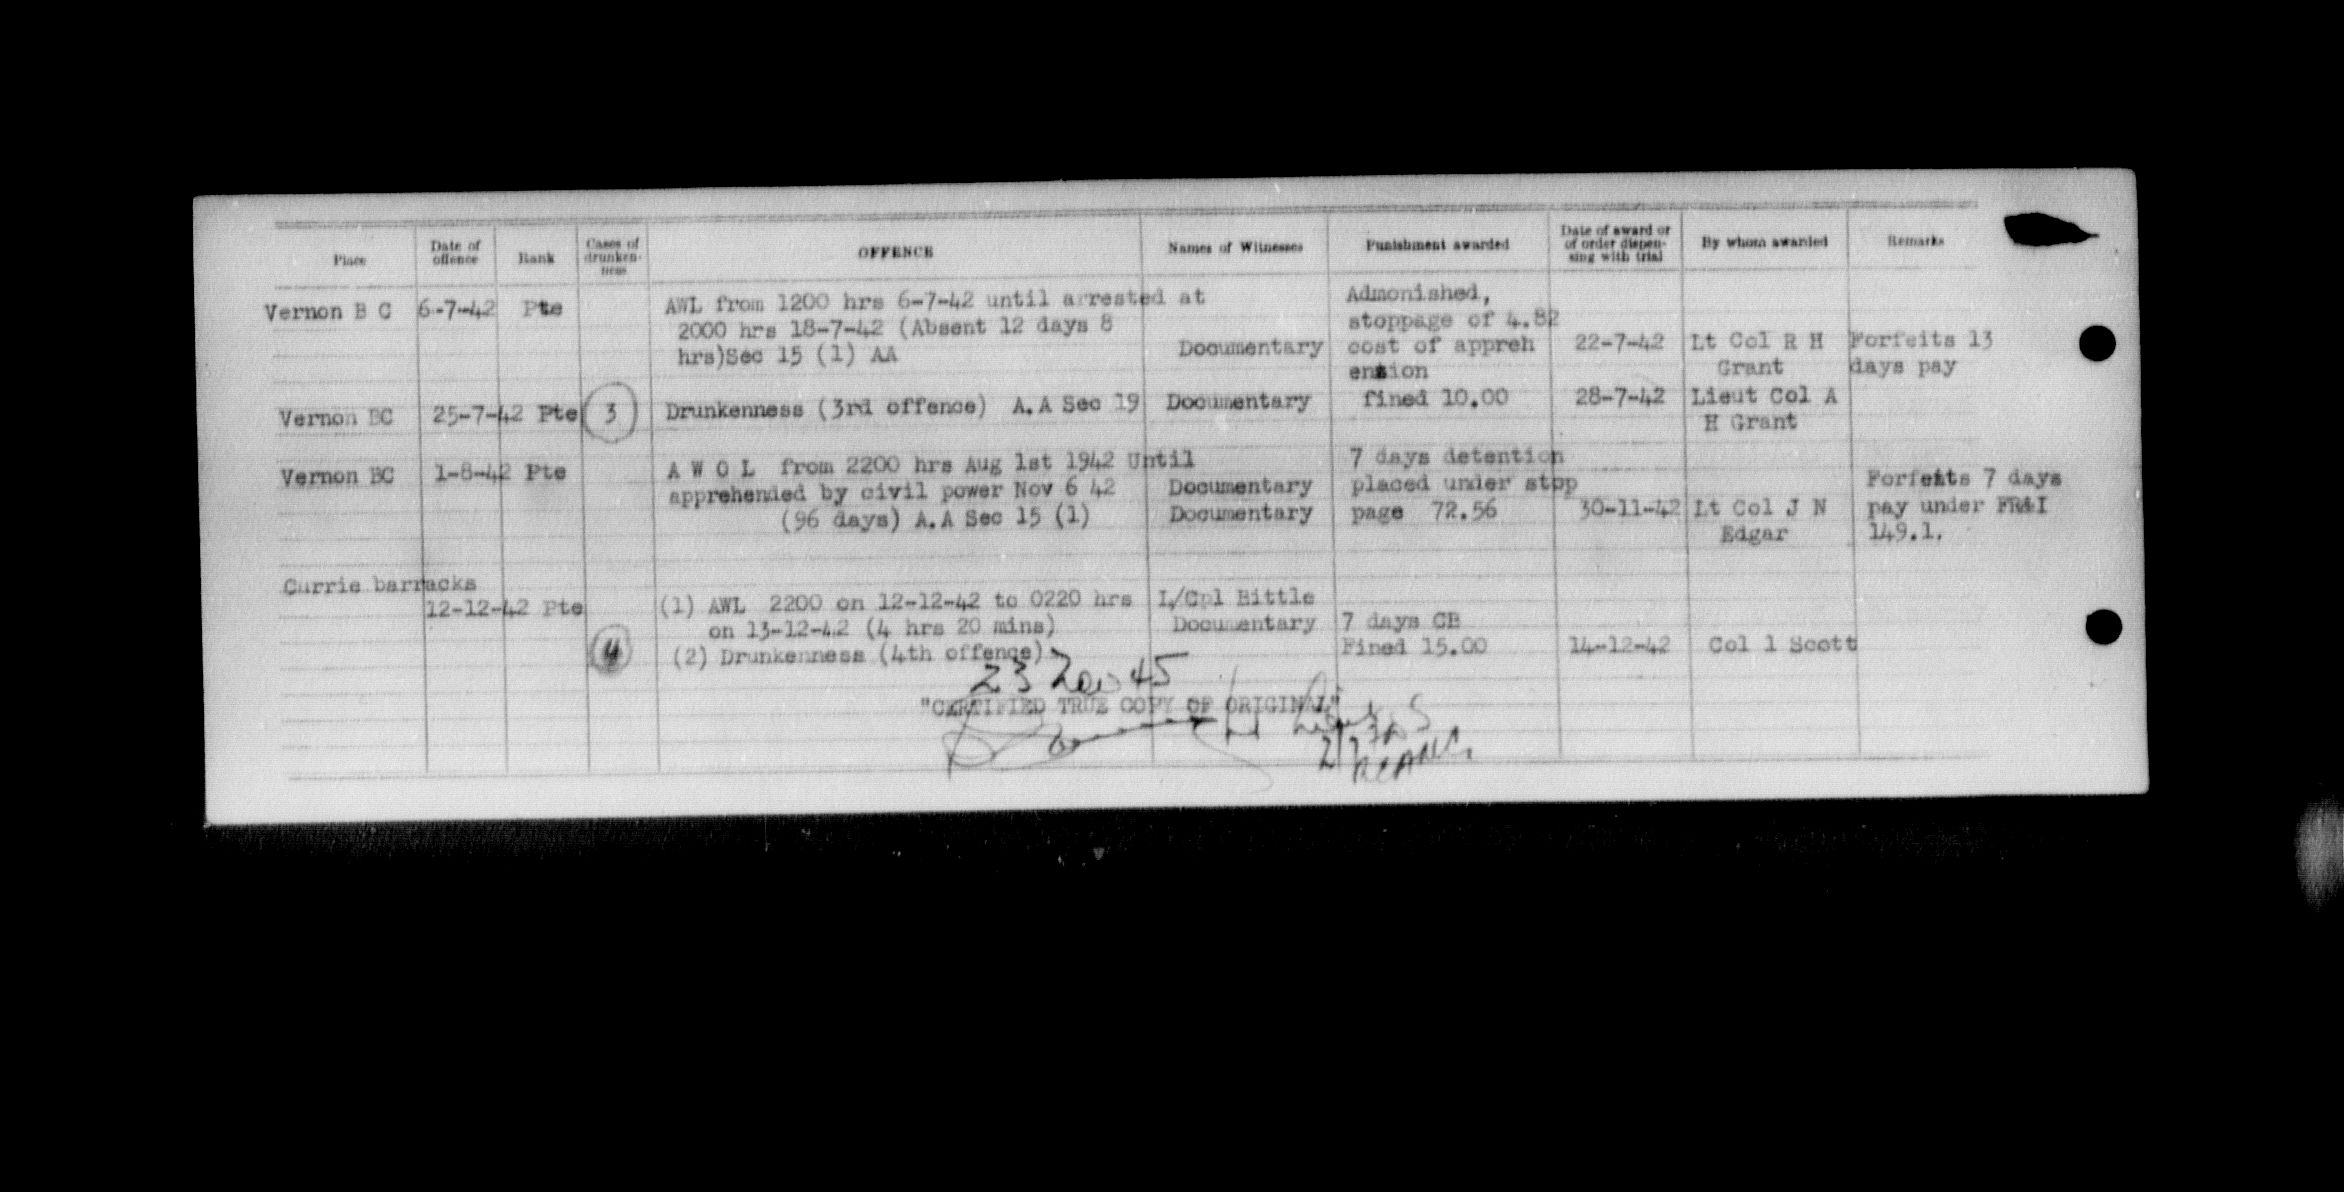 Place Date of offence Rank Cases of drunken-ness OFFENCE Names of Witnesses Punishment awarded Date of award or of order dispen-sing with trial By whom awarded Remarks
Vernon B C 6-7-42 Pte AWL from 1200 hrs 6-7-42 until arrested at Admonished,
2000 hrs 18-7-42 (Absent 12 days 8 stoppage of 4.82
hrs)Sec 15 (1) AA Documentary cost of appreh 22-7-42 Lt Col R H Forfeits 13
ension Grant days pay
Vernon BC 25-7-42 Pte 3 Drunkenness (3rd offence) A.A Sec 19 Documentary fined 10.00 28-7-42 Lieut Col A
H Grant
Vernon BC 1-8-42 Pte A W O L from 2200 hrs Aug 1st 1942 Until 7 days detention
apprehended by civil power Nov 6 42 Documentary placed under stop Forfeits 7 days
(96 days) A.A Sec 15 (1) Documentary page 72.56 30-11-42 Lt Col J N pay under FR&I
Edgar 149.1.
Currie barracks
12-12-42 Pte (1) AWL 2200 on 12-12-42 to 0220 hrs L/Cpl Bittle
on 13-12-42 (4 hrs 20 mins) Documentary 7 days CB
4 (2) Drunkenness (4th offence) Fined 15.00 14-12-42 Col l Scott
23 Nov 45
"CERTIFIED TRUE COPY OF ORIGINAL"